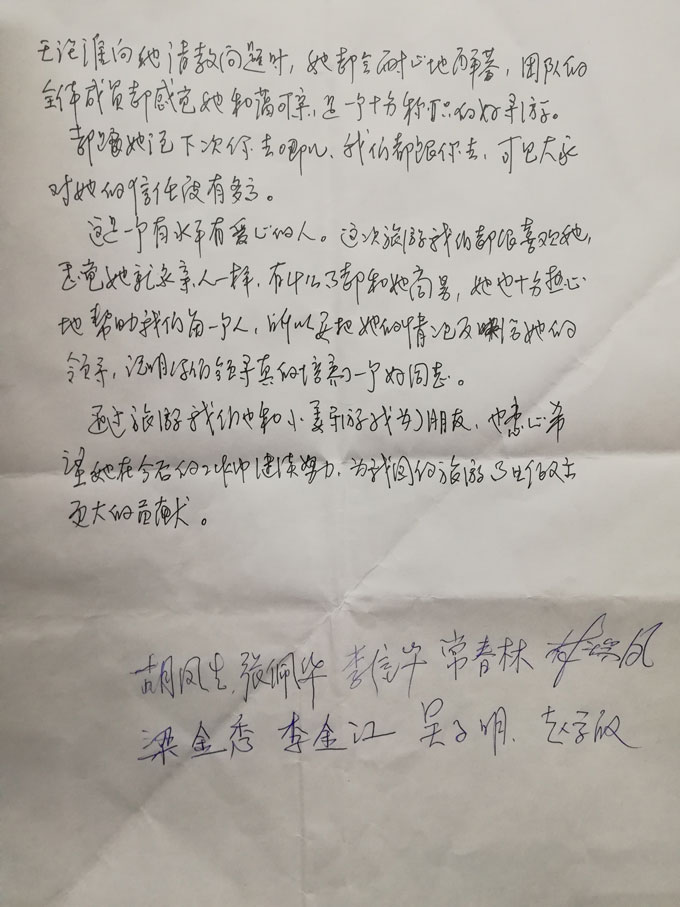 无论谁向她请教问题时，她都会耐心地解答，团队的
全体成员都感觉她和蔼可亲，是一个十分称职的好导游。
都跟她说下次你去哪儿，我们都跟你去，可见大家
对她的信任度有多高。
这是一个有水平有爱心的人。这次旅游我们都很喜欢她，
感觉她就象亲人一样，有什么事都和她商量，她也十分热心
地帮助我们每一个人，所以要把她的情况反映给她的
领导，说明你们领导真的培养了一个好同志。
通过旅游我们也和小姜导游成为了朋友，也衷心希
望她在今后的工作中继续努力，为我国的旅游事业做出
更大的贡献。
胡凤生 张佩华 李宝华 常春林
梁金秀 李金江 吴子明 赵学敏